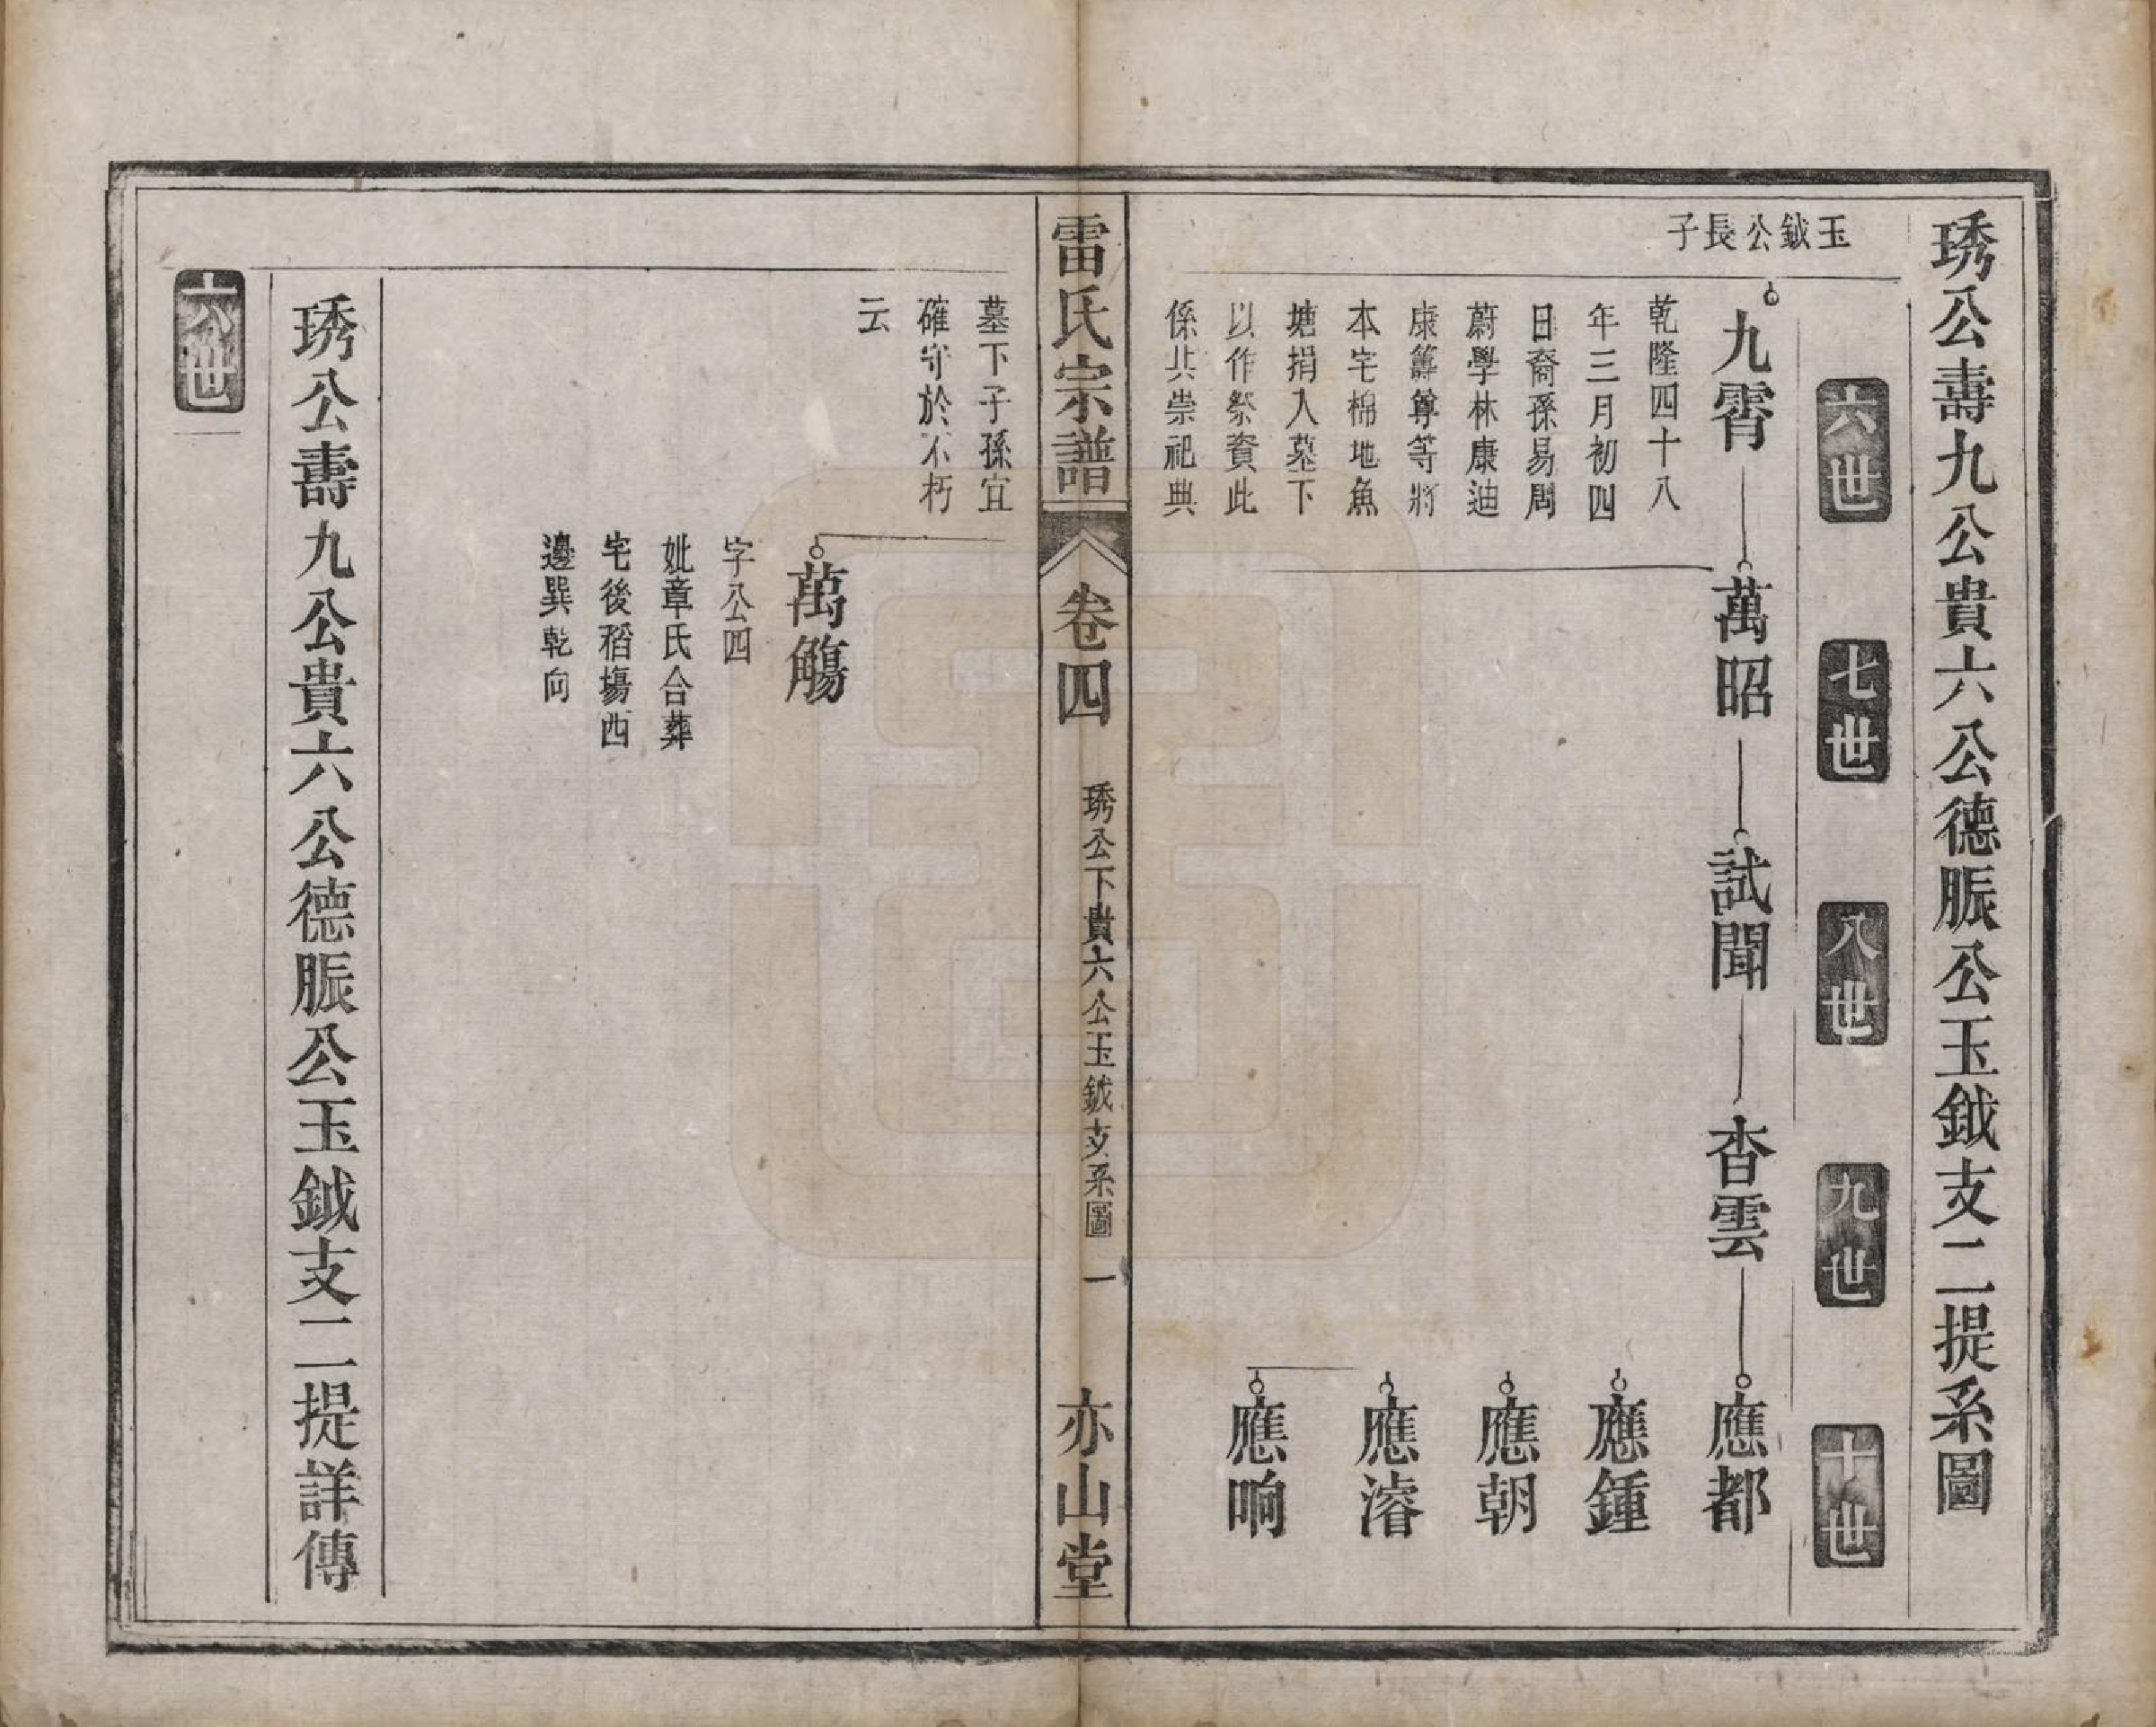 琇公壽九公貴六公德脤公玉鉞支二提系圖
六世
七世
八世
九世
十世
玉鉞公長子
九霄
萬昭
試聞
杳雲
應都
乾隆四十八
年三月初四
日裔孫易周
蔚學林康迪
康籌尊等將
本宅棉地魚
塘捐入墓下
以作祭資此
係共崇祀典
應鍾
應朝
應濬
應响
雷氏宗譜
卷四
琇公下貴六公玉鉞支系圖
一
亦山堂
墓下子孫宜
確守於不朽
云
萬觴
字公四
妣章氏合葬
宅後稻場西
邊巽乾向
琇公壽九公貴六公德脤公玉鉞支二提詳傳
六世